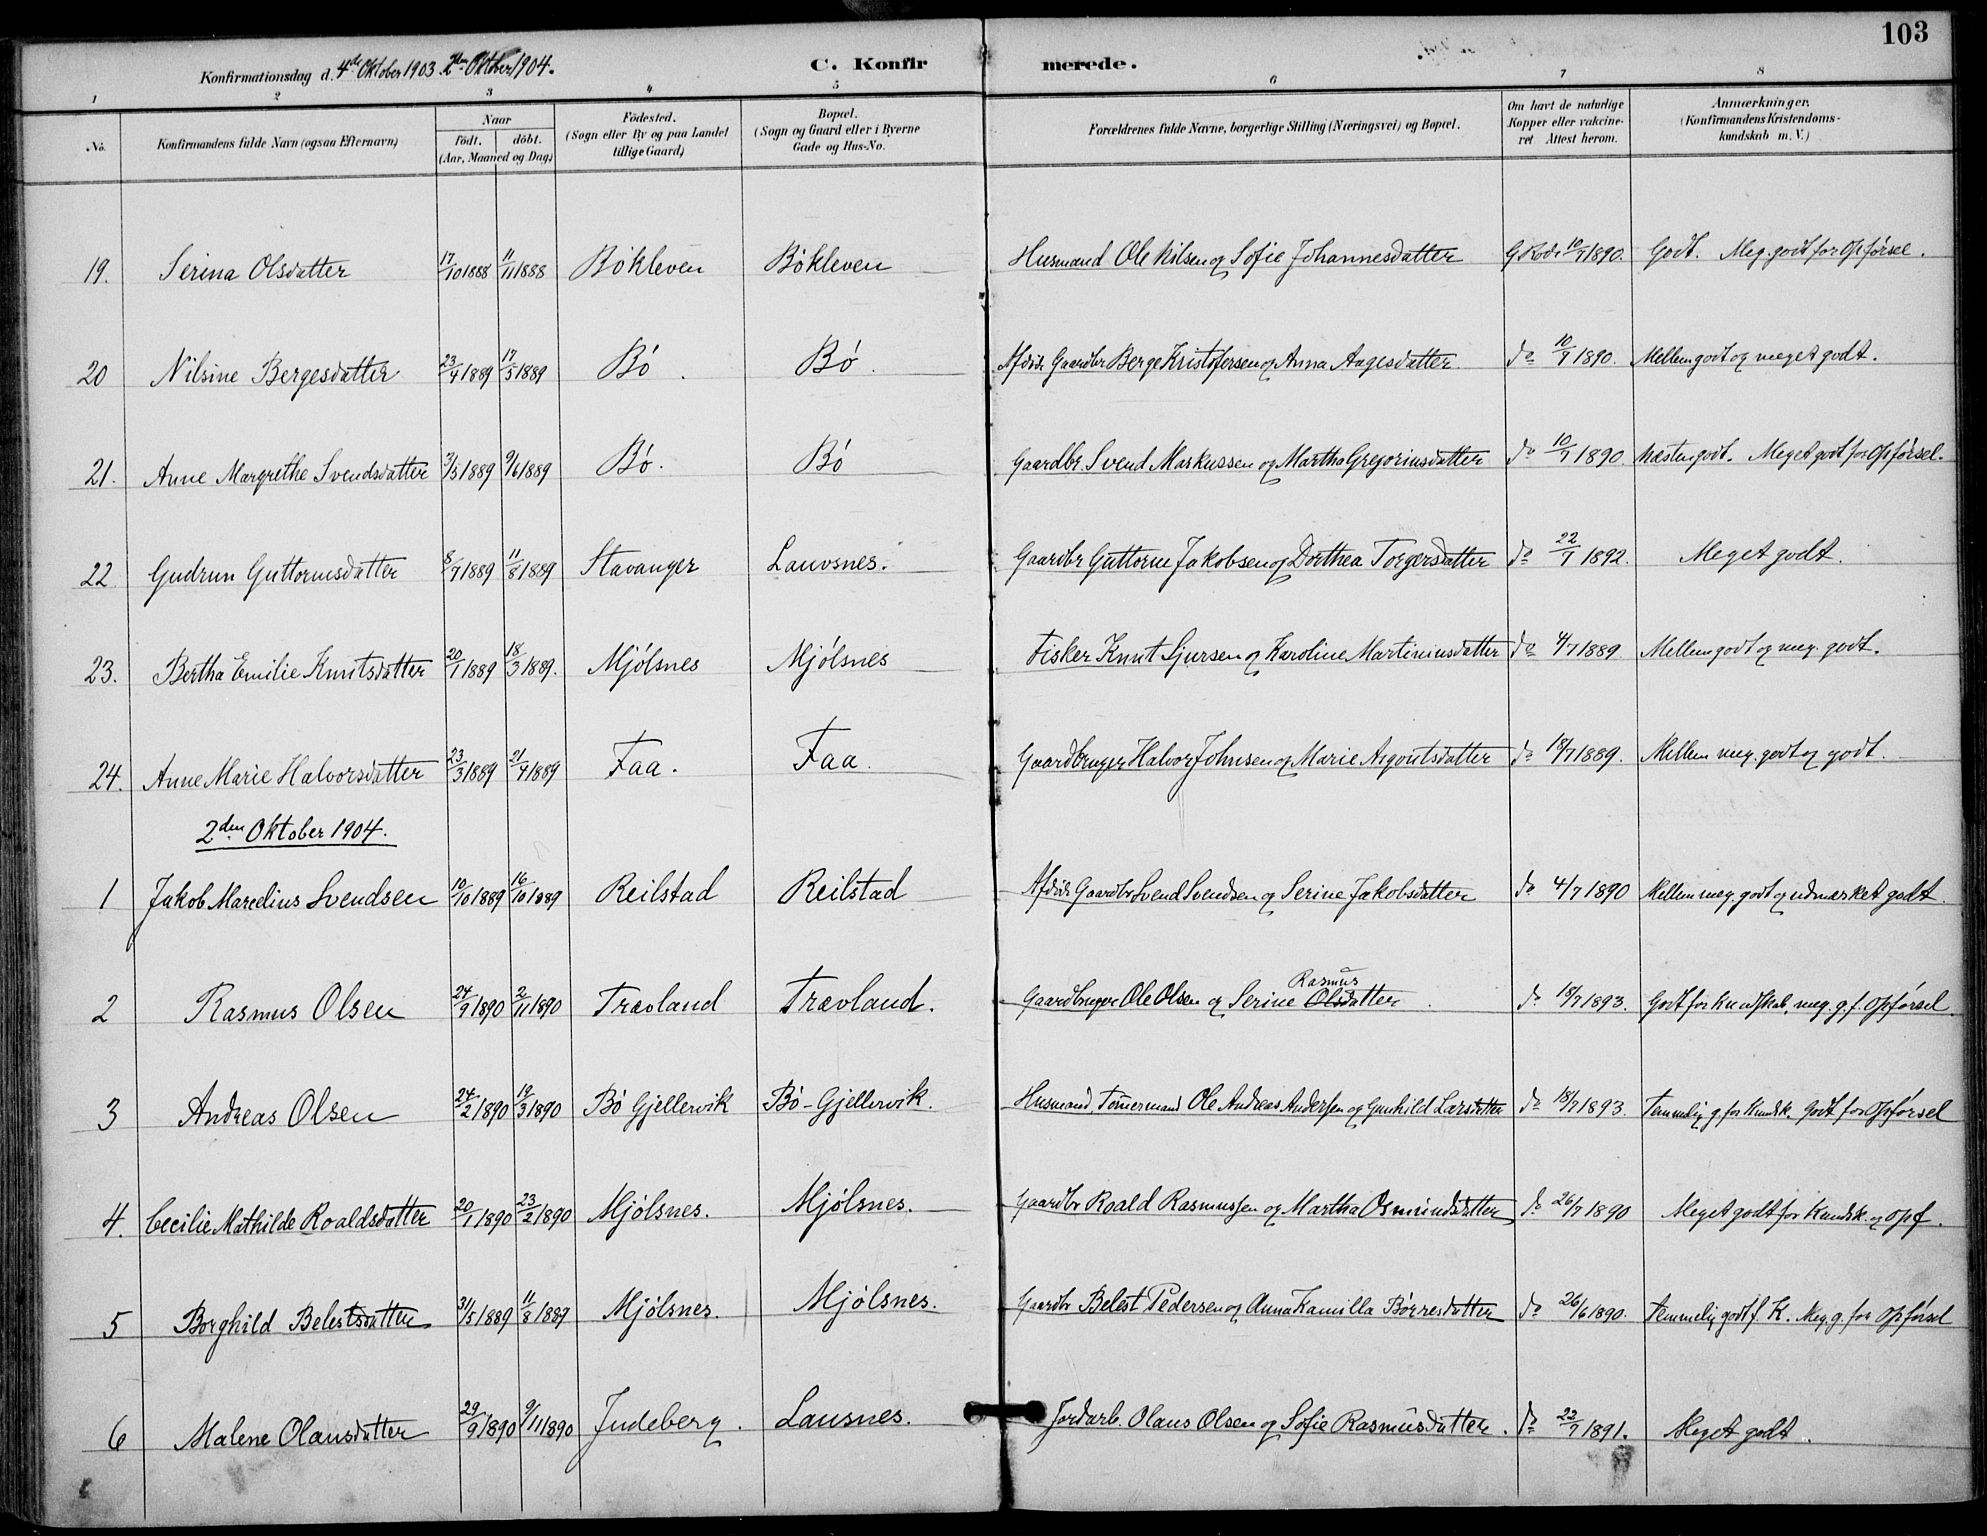 103
Konfirmationsdag d. 4de Oktober 1903. 2den Oktober 1904. C. Konfirmerede.
1 2 3 4 5 6 7 8
No. Konfirmandens fulde Navn (ogsaa Efternavn) Naar födt. döbt. (Aar, Maaned og Dag) Födested. (Sogn eller By og paa Landet tillige Gaard) Bopæl. (Sogn og Gaard eller i Byerne Gade og Hus-No. Forældrenes fulde Navne, borgerlige Stilling (Næringsvei) og Bopæl. Om havt de naturlige Kopper eller vakcineret Attest herom. Anmærkninger. (Konfirmandens Kristendomskundskab m. V.)
19. Serina Olsdatter 17/10 1888 11/11 1888 Bökleven Bökleven Husmand Ole Nilsen og Sofie Johannesdatter 10/9 1890. Godt. Meg. godt for Opførsel.
20 Nilsine Bergesdatter 23/4 1889 17/5 1889 Bö Bö. Gaardbr Berge Kristofersen og Anna Aagesdatter do 10/9 1890. Mellem godt og meget godt.
21. Anne Margrethe Svendsdatter 3/5 1889 9/6 1889 Bö. Bö Gaardbr Svend Markussen og Martha Gregoriusdatter do 10/9 1890 Næsten godt. Meget godt for Opførsel.
22 Gudrun Guttormsdatter 8/7 1889 11/8 1889 Stavanger Lauvsnes. Gaardbr Guttorm Jakobsen og Dorthea Torgersdatter do 22/9 1892. Meget godt.
23. Bertha Emilie Knutsdatter 20/1 1889 18/3 1889. Mjölsnes Mjölsnes Fisker Knut Sjursen og Karoline Martiniusdatter do 4/7 1889. Mellem godt og meg. godt.
24. Anne Marie Halvorsdatter 23/3 1889 21/4 1889 Faa. Faa. Gaardbruger Halvor Johnsen og Marie Asgoutsdatter do 18/7 1889. Mellem meg. godt og godt.
2den Oktober 1904.
1 Jakob Marcelius Svendsen 10/10 1889 16/10 1889 Reilstad Reilstad Gaardbr Svend Svendsen og Serine Jakobsdatter do 4/7 1890 Mellem meg. godt og udmærket godt.
2 Rasmus Olsen 24/9 1890 2/11 1890 Trævland Trævland. Gaardbruger Ole Olsen og Serine Rasmus Olsdatter do 18/7 1893. Godt for Kundskab, meg. g. f. Opførsel.
3 Andreas Olsen 24/2 1890 19/3 1890 Bö Gjellervik Bö-Gjellervik. Husmand, Tømmermand Ole Andreas Andersen og Gunhild Larsdatter do 18/7 1893. Temmelig g. for Kundsk. Godt for Opførsel
4. Cecilie Mathilde Roaldsdatter 20/1 1890 23/2 1890 Mjölsnes. Mjölsnes. Gaardbr Roald Rasmussen og Martha Osmundsdatter do 26/7 1890 Meget godt for Kundsk. og Opf.
5 Borghild Belestsdatter 31/5 1889 11/8 1889 Mjölsnes. Mjölsnes. Gaardbr Belest Pedersen og Anna Kamilla Börresdatter do 26/6 1890. Temmelig godt f. K. Meg. g. for Opførsel
6 Malene Olausdatter 29/9 1890 9/11 1890 Judeberg. Lausnes. Jordarb. Olaus Olsen og Sofie Rasmusdatter. do 22/9 1891. Meget godt.